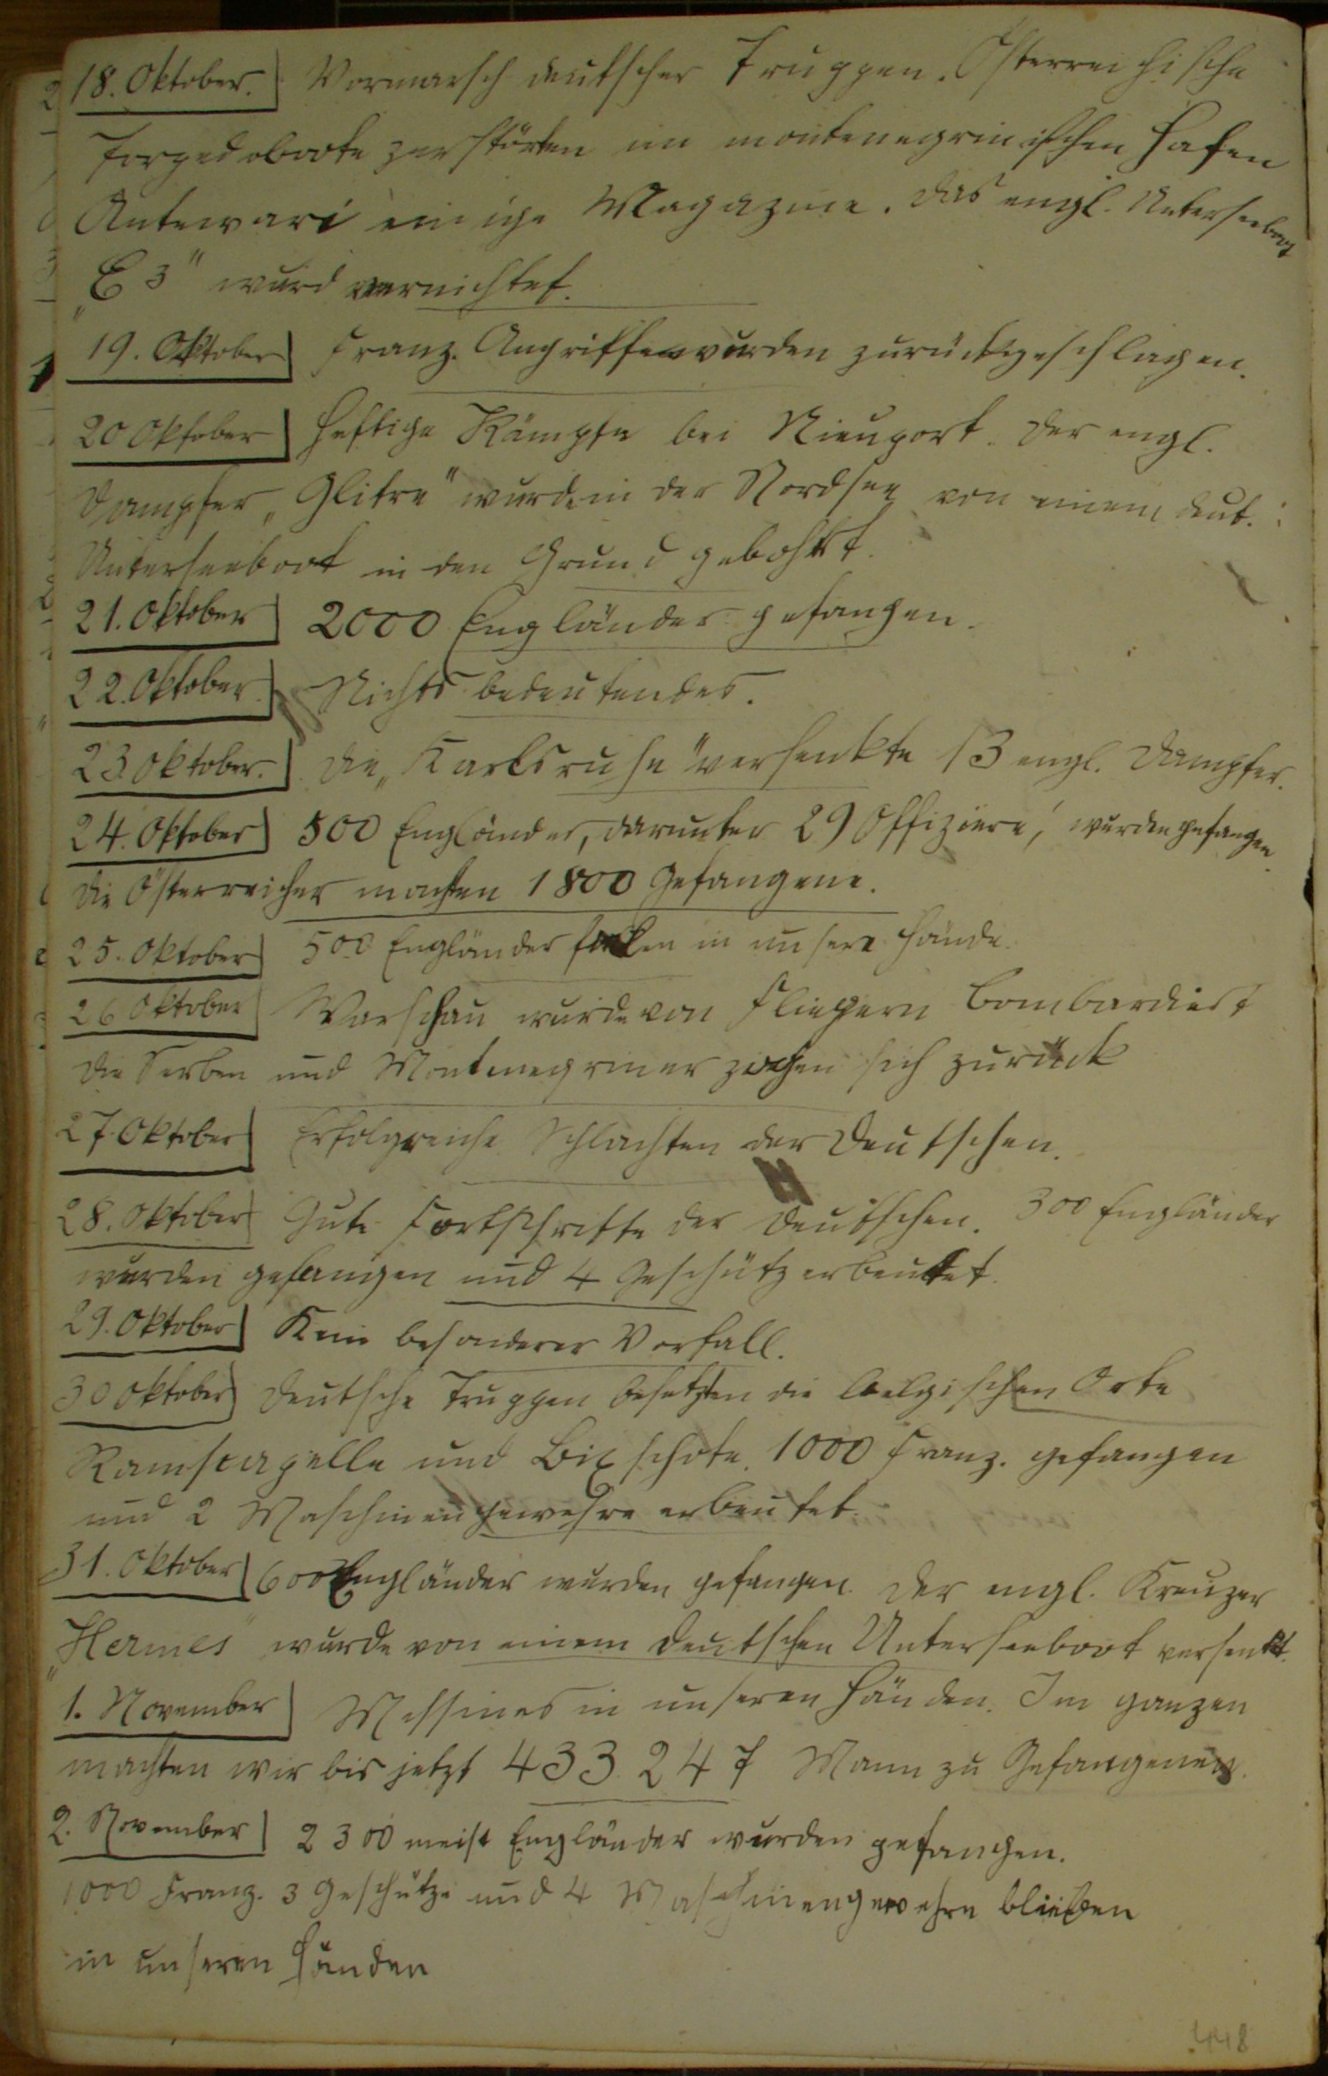 18. Oktober. Vormarsch deutscher Truppen. Österreichische
Torpedoboote zerstörten im montenegrinischen Hafen
Antewari einige Magazine. Das engl. Unterseeboot
„E 3" wurd vernichtet.
19. Oktober Franz. Angriffe wurden zurückgeschlagen.
20 Oktober Heftige Kämpfe bei Nieuport. Der engl.
Dampfer „Glitre" wurde in der Nordsee von einem deut.
Unterseeboot in den Grund gebohrt.
21. Oktober 2000 Engländer gefangen.
22. Oktober Nichts bedeutendes.
23. Oktober. Die „Karlsruhe" versenkte 13 engl. Dampfer.
24. Oktober 500 Engländer, darunter 29 Offiziere, wurden gefangen.
Die Österreicher machten 1800 Gefangene.
25. Oktober 500 Engländer fielen in unsere Hände.
26 Oktober Warschau wurde von Fliegern bombardiert
Die Serben und Montenegriner zogen sich zurück
27. Oktober Erfolgreiche Schlachten der Deutschen.
28. Oktober Gute Fortschritte der Deutschen. 300 Engländer
wurden gefangen und 4 Geschütz erbeutet.
29. Oktober Kein besonderer Vorfall.
30 Oktober Deutsche Truppen besetzten die belgischen Orte
Ramscapelle und Bixschote. 1000 Franz. gefangen
und 2 Maschinengewehre erbeutet.
31. Oktober 600 Engländer wurden gefangen. Der engl. Kreuzer
„Hermes" wurde von einem deutschen Unterseeboot versenkt.
1. November Messines in unseren Händen. Im ganzen
machten wir bis jetzt 433.247 Mann zu Gefangenen.
2. November 2300 meist Engländer wurden gefangen.
1000 Franz. 3 Geschütze und 4 Maschinengewehre blieben
in unseren Händen
448